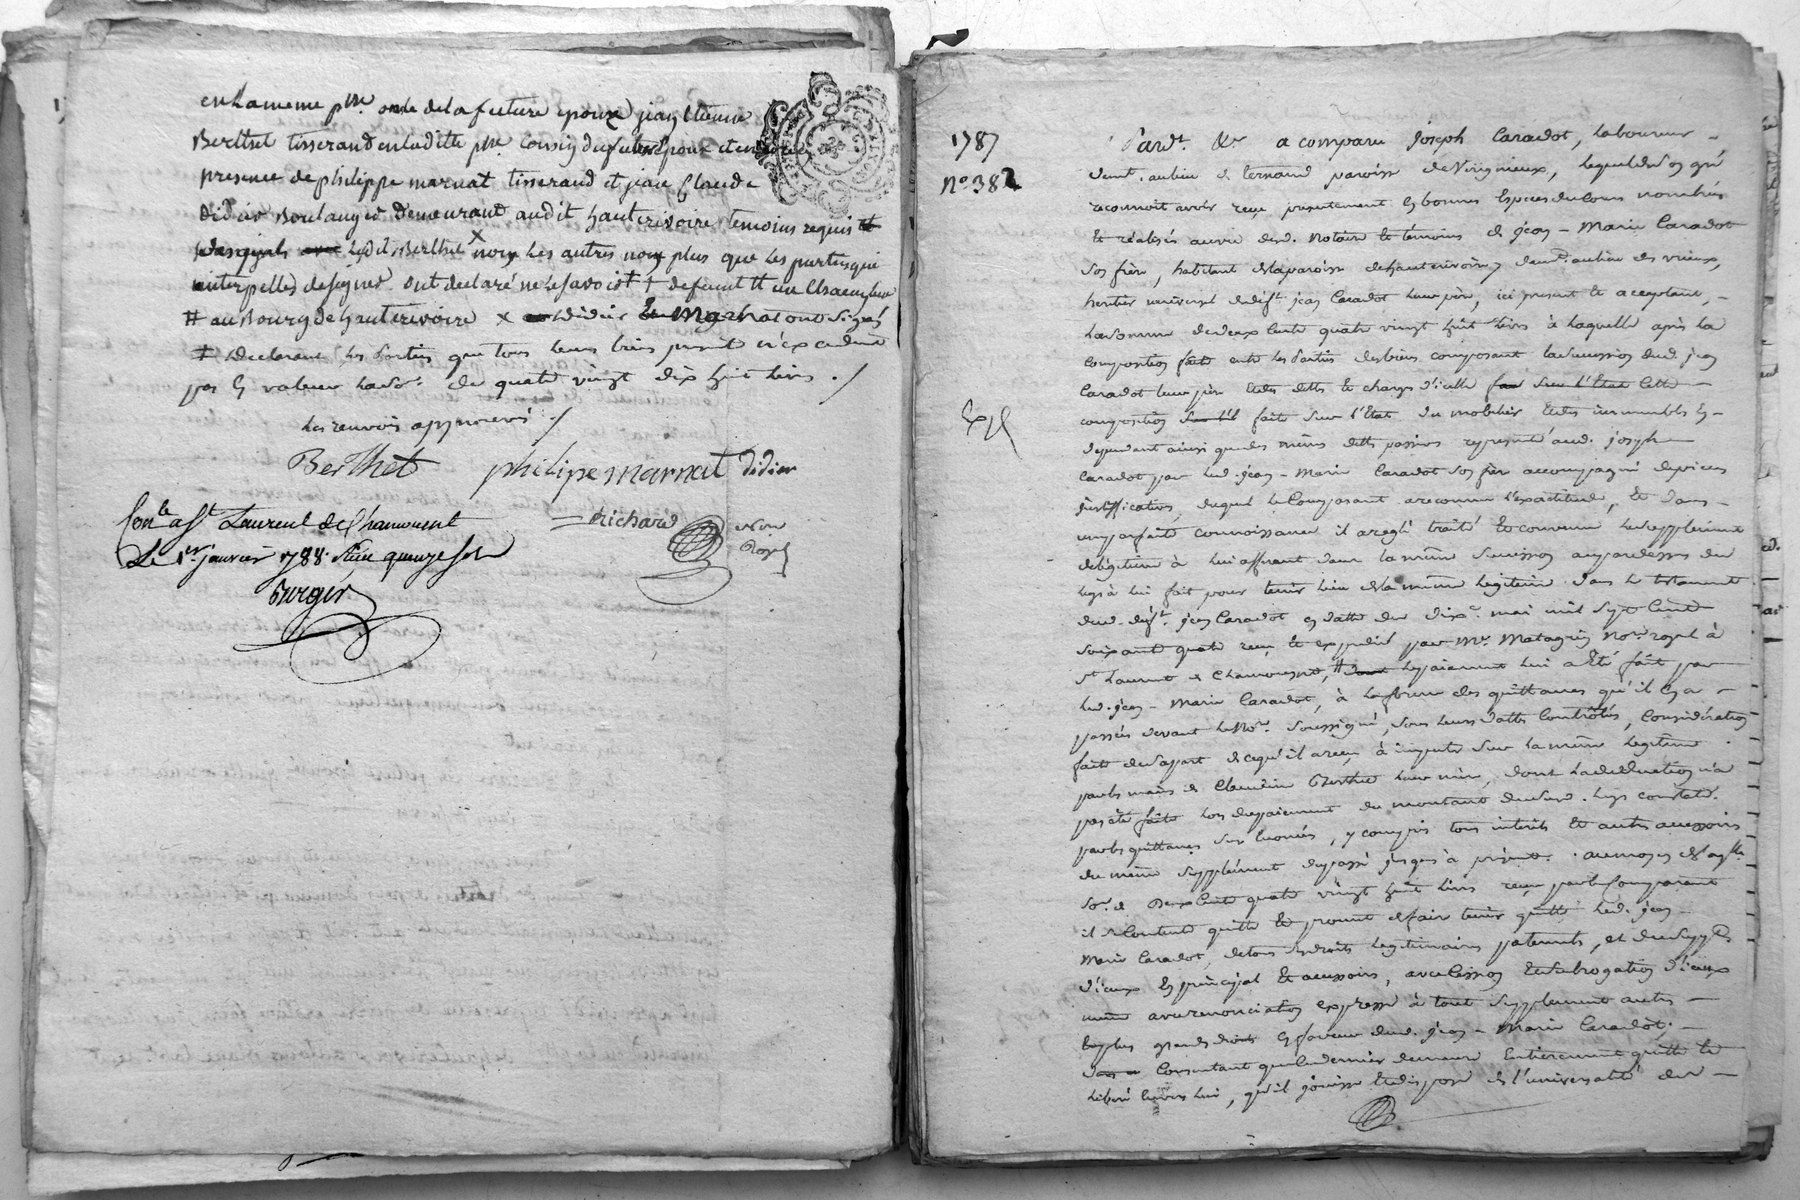 en la meme psse oncle de la future epouze jean Etienne
Berthet tisserand en laditte psse cousin du futur epoux et en
presence de philippe marnat tisserand et jean Claude
didier Boulanger demeurant audit hauterivoire temoins requis
ledit Berthet x non les autres non plus que les parties qui
interpellés de signer ont declaré ne le savoir
# au Bourg de hauterivoire x didier et Marnat ont signés
‡ declarant les parties que tous leurs biens presents n'excedent
pas en valeur la so. de quatre vingt dix huit livres ./
les renvois approuvés ./
Berthet philipe marnat didier
Richard Nore Royal
Conlé a St Laurent de Chamousset
Le 1er janvier 1788 Reçu quinze sols
Burger
1787
No 382
Pardt. &c a comparu Joseph Caradot, laboureur
demt. au lieu de paroisse de Virigneux, lequel de son gré
reconnoit avoir reçu presentement en bonnes Especes du cours nombrés
et réalisés au vu dud. Notaire et témoins de jean-Marie Caradot
son frère, habitant de la paroisse de hauterivoire, demt. au lieu des
heritier universel de deft. jean Caradot leur père, ici present et acceptant,
la somme de deux Cents quatre vingt huit livres à laquelle après la
composition faite entre les Parties des biens composant la succession dud. jean
Caradot leur père et des dettes et charges d'icelle Cette
composition faite sur l'Etat du mobilier et des immeubles en
dependant ainsi que des mêmes dettes passives representé aud. joseph
Caradot par led. jean-Marie Caradot son frère accompagné de pièces
justificatives, duquel le Comparant a reconnu l'exactitude, et dans
une parfaite connoissance il a reglé traité et convenu le supplement
de légitime à lui afferant dans la même succession au par dessus du
legs à lui fait pour tenir lieu de la même legitime dans le testament
dud. deft. jean Caradot en datte du dix mai mil sept Cent
soixante quatre reçu et expedié par Me. Matagrin Nore. royal à
St Laurent de Chamousset, # le paiement lui a été fait par
led. jean-Marie Caradot, à la forme des quittances qu'il en a
passées devant le Nore. soussigné, sous leurs dattes Contrôlées, Considération
faite de sa part de ce qu'il a reçu à imputer sur la même legitime
par les mains de Claudine Berthet leur mère, dont la déduction n'a
pas été faite lors du paiement du montant dud. legs constaté
par les quittances sus énoncées, y compris tous interets et autres accessoires
du même supplément du passé jusques à present. au moyen de laqlle.
so. de Deux Cents quatre vingt huit livres reçue par le Comparant
il se Contente quitte et promet de faire tenir quitte led. jean
Marie Caradot, de tous ses droits legitimaires paternels, et du supplt.
d'iceux En principal et accessoires, avec Cession et subrogation d'iceux
même avec renonciation expresse à tout supplement autre
et plus grands droits en faveur dud. jean-Marie Caradot,
Consentant que ce dernier demeure Entierement quitte et
liberé Envers lui, qu'il jouisse et dispose de l'universalité des